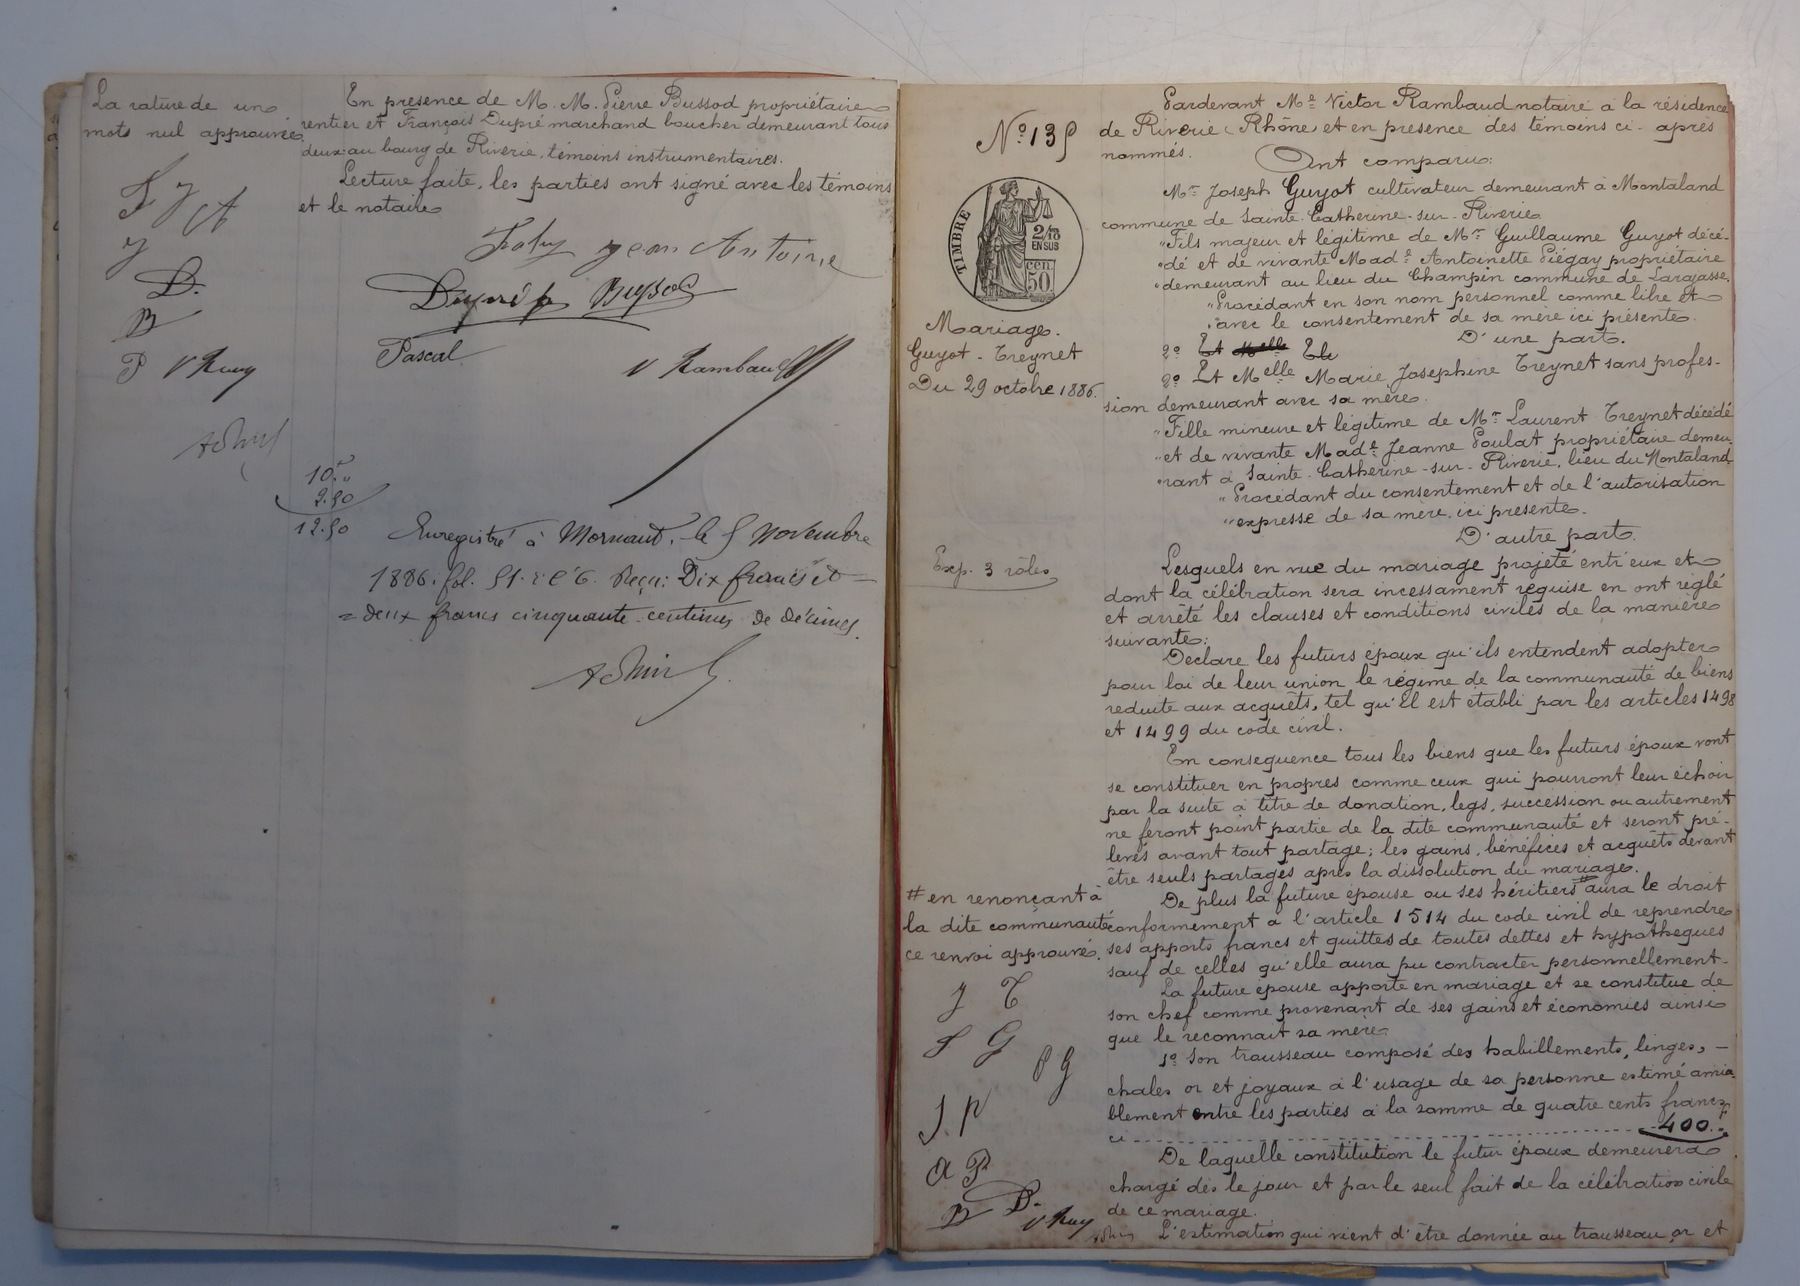 La rature de un
mots nul approuvée
En presence de M. M. Pierre Bussod propriétaire
rentier et François Dupré marchand boucher demeurant tous
deux au bourg de Riverie, témoins instrumentaires.
Lecture faite, les parties ont signé avec les témoins
et le notaire
Jean Antoine
Dupré Bussod
Pascal
V Rambaud
D.
B
P V Ray
10."
2.50
12.50
Enregistré à Mornant, le 5 Novembre
1886, fol. 51. Reçu: Dix francs et
= deux francs cinquante centimes de décimes.
N° 135
TIMBRE
2/10
EN SUS
50 cen
Mariage.
Guyot - Treynet
Du 29 octobre 1886.
Exp. 3 rôles
# en renonçant à
la dite communauté
ce renvoi approuvé.
J T
J G
P G
J. P
A P
B D.
V Ray
Pardevant Me Victor Rambaud notaire à la résidence
de Riverie (Rhône) et en presence des témoins ci-après
nommés.
Ont comparu:
Mr Joseph Guyot cultivateur demeurant à Montaland
commune de Sainte-Catherine-sur-Riverie
"Fils majeur et légitime de Mr Guillaume Guyot décé-
"dé et de vivante Made Antoinette Piégay propriétaire
"demeurant au lieu du Champin commune de Larajasse.
"Procédant en son nom personnel comme libre et
"avec le consentement de sa mère ici présente.
D'une part.
2° Et Melle Ele
2° Et Melle Marie Josephine Treynet sans profes-
sion demeurant avec sa mère.
"Fille mineure et légitime de Mr Laurent Treynet décédé
"et de vivante Made Jeanne Poulat propriétaire demeu-
"rant à Sainte-Catherine-sur-Riverie, lieu du Montaland
"Procédant du consentement et de l'autorisation
"expresse de sa mère ici présente.
D'autre part.
Lesquels en vue du mariage projeté entr'eux et
dont la célébration sera incessament requise en ont réglé
et arrêté les clauses et conditions civiles de la manière
suivante:
Declare les futurs époux qu'ils entendent adopter
pour loi de leur union le régime de la communauté de biens
reduite aux acquêts, tel qu'il est établi par les articles 1498
et 1499 du code civil.
En consequence tous les biens que les futurs époux vont
se constituer en propres comme ceux qui pourront leur échoir
par la suite à titre de donation, legs, succession ou autrement
ne feront point partie de la dite communauté et seront pré-
levés avant tout partage; les gains, bénéfices et acquêts devant
être seuls partagés après la dissolution du mariage.
De plus la future épouse ou ses héritiers # aura le droit
conformement à l'article 1514 du code civil de reprendre
ses apports francs et quittes de toutes dettes et hypotheques
sauf de celles qu'elle aura pu contracter personnellement-
La future épouse apporte en mariage et se constitue de
son chef comme provenant de ses gains et économies ainsi
que le reconnait sa mère
1° Son trousseau composé des habillements, linges, -
chales or et joyaux à l'usage de sa personne estimé amia-
blement entre les parties à la somme de quatre cents francs
ci 400.
De laquelle constitution le futur époux demeurera
chargé dès le jour et par le seul fait de la célébration civile
de ce mariage.
L'estimation qui vient d'être donnée au trousseau, or et